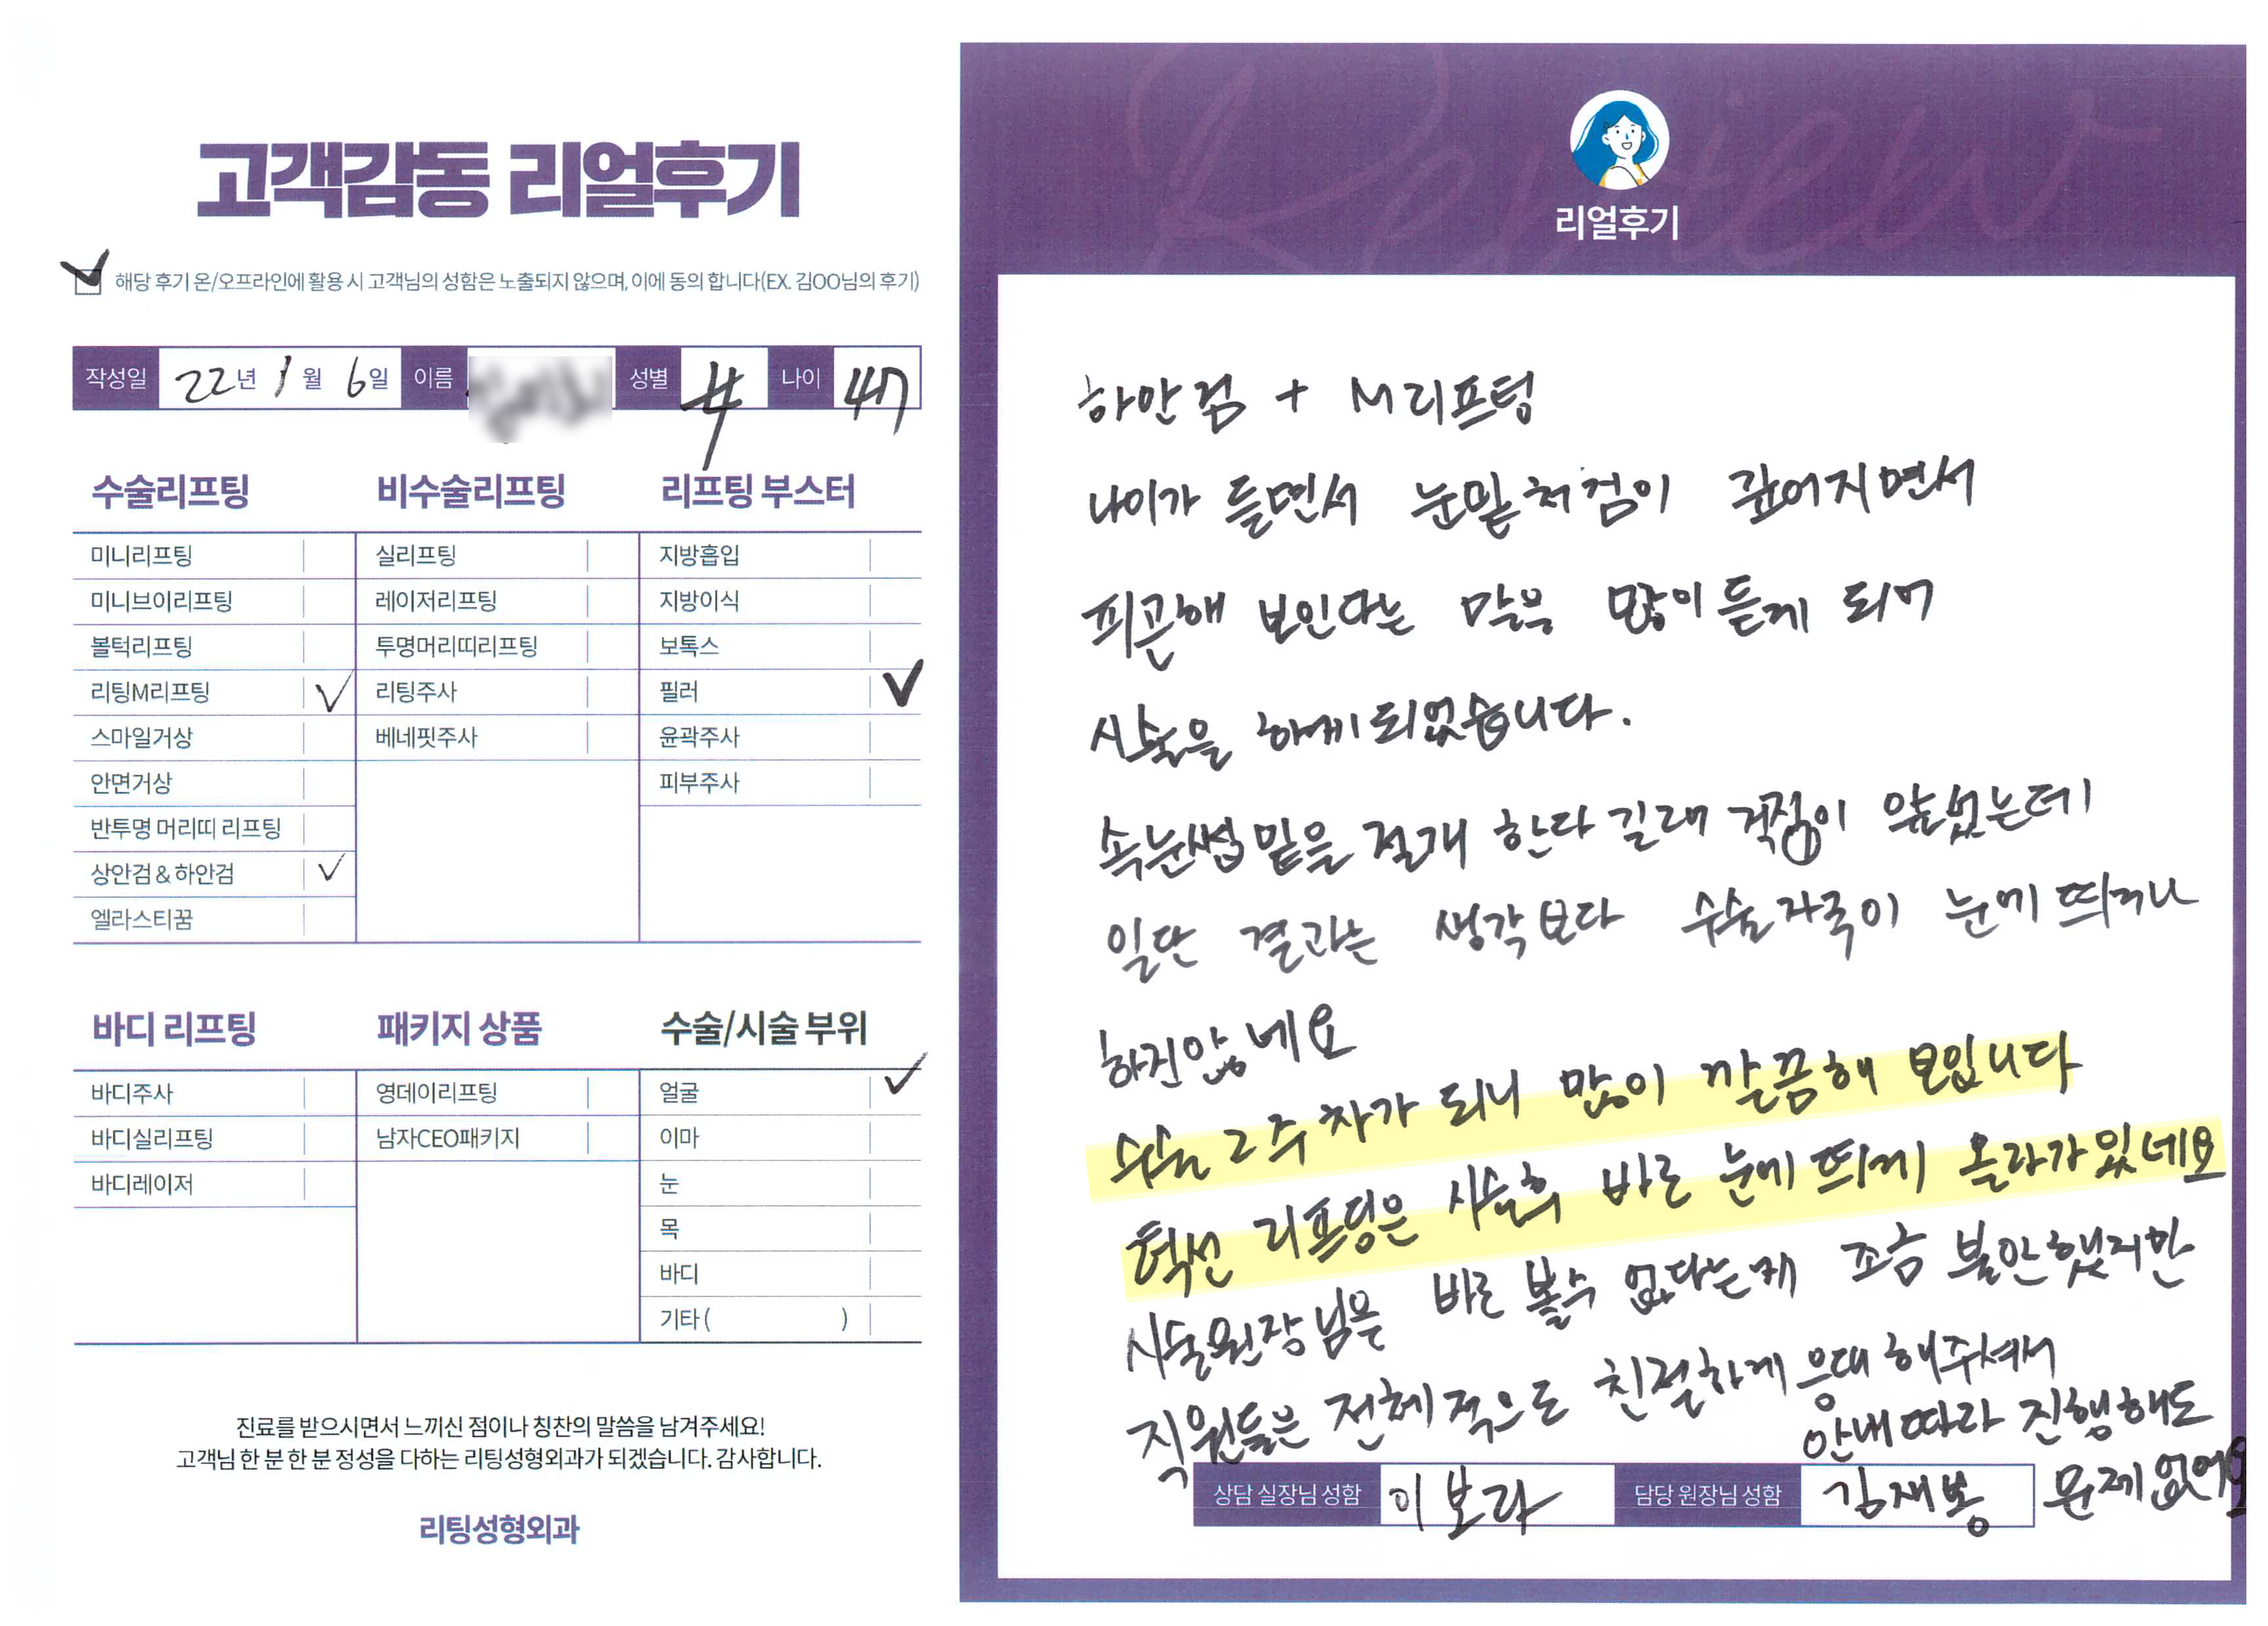 고객감동 리얼후기
해당 후기 온/오프라인에 활용 시 고객님의 성함은 노출되지 않으며, 이에 동의 합니다(EX. 김OO님의 후기)
작성일 22년 1월 6일 이름 성별 나이 47
수술리프팅
미니리프팅
미니브이리프팅
볼턱리프팅
리팅M리프팅
스마일거상
안면거상
반투명 머리띠 리프팅
상안검 & 하안검
엘라스티꿈
비수술리프팅
실리프팅
레이저리프팅
투명머리띠리프팅
리팅주사
베네핏주사
리프팅 부스터
지방흡입
지방이식
보톡스
필러
윤곽주사
피부주사
바디 리프팅
바디주사
바디실리프팅
바디레이저
패키지 상품
영데이리프팅
남자CEO패키지
수술/시술 부위
얼굴
이마
눈
목
바디
기타 ( )
진료를 받으시면서 느끼신 점이나 칭찬의 말씀을 남겨주세요!
고객님 한 분 한 분 정성을 다하는 리팅성형외과가 되겠습니다. 감사합니다.
리팅성형외과
Review
리얼후기
하안검 + M리프팅
나이가 들면서 눈밑 처짐이 깊어지면서
피곤해 보인다는 말을 많이 듣게 되어
시술을 하게 되었습니다.
속눈썹 밑을 절개 한다 길래 걱정이 앞섰는데
일단 결과는 생각보다 수술자국이 눈에 띄거나
하진않네요
수술 2주 차가 되니 많이 깔끔해 보입니다
턱선 리프팅은 시술후 바로 눈에 띄게 올라가있네요
시술원장님을 바로 볼수 없다는게 조금 불안했지만
직원들은 전체적으로 친절하게 응대 해주셔서
안내따라 진행해도
문제없어요
상담 실장님 성함 이보라 담당 원장님 성함 김재봉